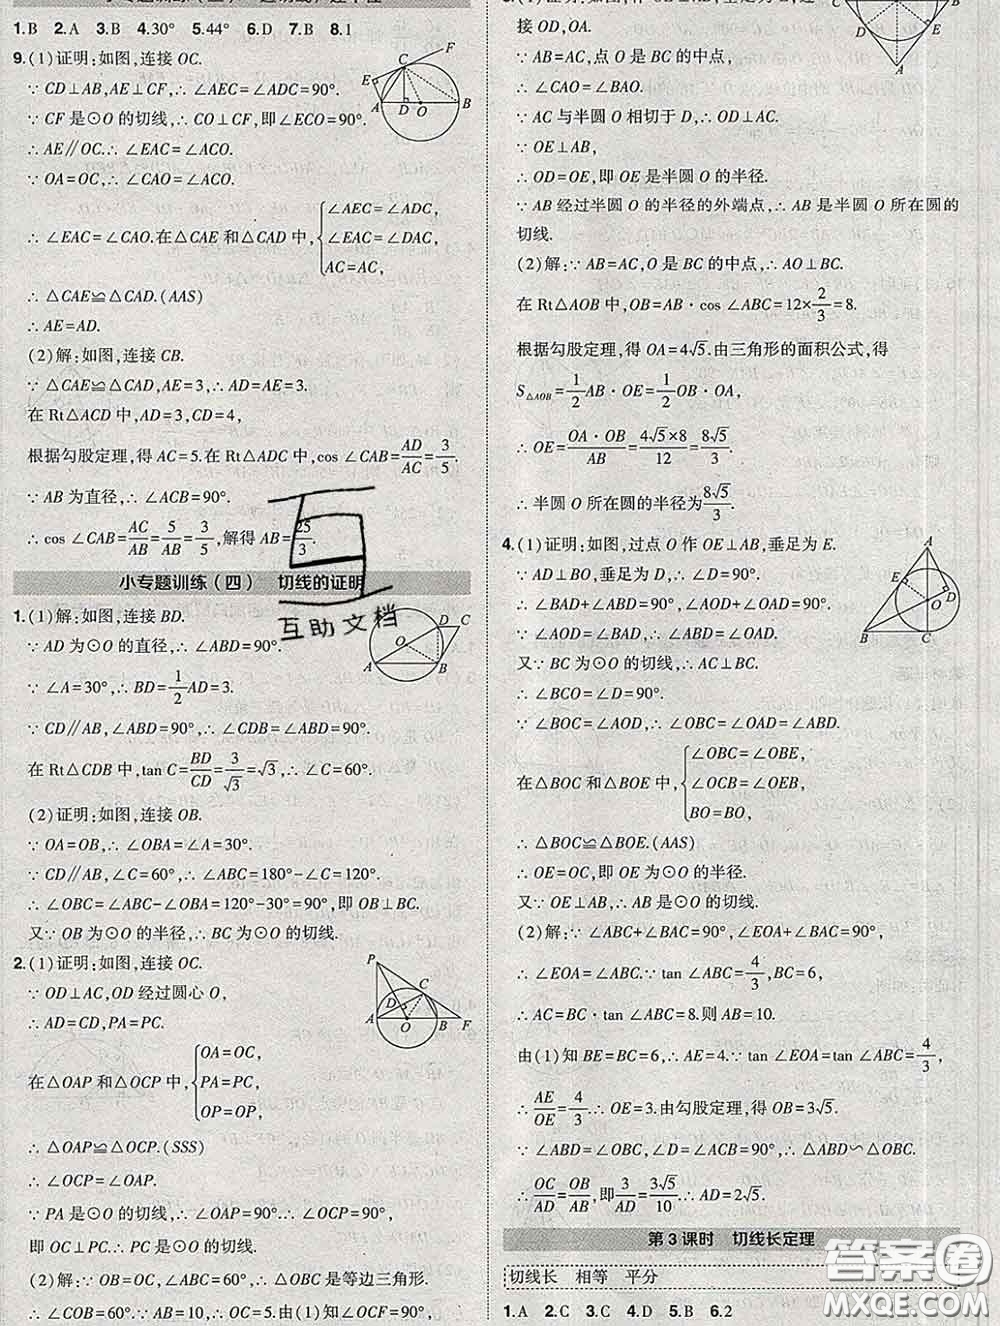 1.B 2.A 3.B 4.30° 5.44° 6.D 7.B 8.1
9.(1)证明:如图,连接 OC.
∵ CD⊥AB,AE⊥CF,∴ ∠AEC=∠ADC=90°.
∵ CF 是⊙O 的切线,∴ CO⊥CF,即∠ECO=90°.
∴ AE∥OC.∴ ∠EAC=∠ACO.
∵ OA=OC,∴ ∠CAO=∠ACO.
∴ ∠EAC=∠CAO.在△CAE 和△CAD 中,{∠AEC=∠ADC,
∠EAC=∠DAC,
AC=AC,
∴ △CAE≌△CAD.(AAS)
∴ AE=AD.
(2)解:如图,连接 CB.
∵ △CAE≌△CAD,AE=3,∴ AD=AE=3.
在 Rt△ACD 中,AD=3,CD=4,
根据勾股定理,得 AC=5.在 Rt△ADC 中,cos ∠CAB=AD/AC=3/5.
∵ AB 为直径,∴ ∠ACB=90°.
∴ cos ∠CAB=AC/AB=5/AB=3/5,解得 AB=25/3.
小专题训练(四) 切线的证明
1.(1)解:如图,连接 BD.
∵ AD 为⊙O 的直径,∴ ∠ABD=90°.
∵ ∠A=30°,∴ BD=1/2AD=3.
∵ CD∥AB,∠ABD=90°,∴ ∠CDB=∠ABD=90°.
在 Rt△CDB 中,tan C=BD/CD=3/√3=√3,∴ ∠C=60°.
(2)证明:如图,连接 OB.
∵ OA=OB,∴ ∠OBA=∠A=30°.
∵ CD∥AB,∠C=60°,∴ ∠ABC=180°-∠C=120°.
∴ ∠OBC=∠ABC-∠OBA=120°-30°=90°,即 OB⊥BC.
又∵ OB 为⊙O 的半径,∴ BC 是⊙O 的切线.
2.(1)证明:如图,连接 OC.
∵ OD⊥AC,OD 经过圆心 O,
∴ AD=CD,PA=PC.
在△OAP 和△OCP 中,{OA=OC,
PA=PC,
OP=OP,
∴ △OAP≌△OCP.(SSS)
∴ ∠OCP=∠OAP.
∵ PA 是⊙O 的切线,∴ ∠OAP=90°.∴ ∠OCP=90°,
即 OC⊥PC.∴ PC 是⊙O 的切线.
(2)解:∵ OB=OC,∠OBC=60°,∴ △OBC 是等边三角形.
∴ ∠COB=60°.∵ AB=10,∴ OC=5.由(1)知∠OCF=90°,
接 OD,OA.
∵ AB=AC,点 O 为 BC 的中点,
∴ ∠CAO=∠BAO.
∵ AC 与半圆 O 相切于 D,∴ OD⊥AC.
∵ OE⊥AB,
∴ OD=OE,即 OE 是半圆 O 的半径.
∵ AB 经过半圆 O 的半径的外端点,∴ AB 是半圆 O 所在圆的
切线.
(2)解:∵ AB=AC,O 是 BC 的中点,∴ AO⊥BC.
在 Rt△AOB 中,OB=AB·cos ∠ABC=12×2/3=8.
根据勾股定理,得 OA=4√5.由三角形的面积公式,得
S△AOB=1/2AB·OE=1/2OB·OA,
∴ OE=OA·OB/AB=4√5×8/12=8√5/3.
∴ 半圆 O 所在圆的半径为8√5/3.
4.(1)证明:如图,过点 O 作 OE⊥AB,垂足为 E.
∵ AD⊥BO,垂足为 D,∴ ∠ADB=90°.
∴ ∠BAD+∠ABD=90°,∠AOD+∠OAD=90°.
∵ ∠AOD=∠BAD,∴ ∠ABD=∠OAD.
又∵ BC 为⊙O 的切线,∴ AC⊥BC.
∴ ∠BCO=∠ADB=90°.
∵ ∠BOC=∠AOD,∴ ∠OBC=∠OAD=∠ABD.
在△BOC 和△BOE 中,{∠OBC=∠OBE,
∠OCB=∠OEB,
BO=BO,
∴ △BOC≌△BOE.(AAS)
∴ OE=OC,即 OE 为⊙O 的半径.
又∵ OE⊥AB,∴ AB 是⊙O 的切线.
(2)解:∵ ∠ABC+∠BAC=90°,∠EOA+∠BAC=90°,
∴ ∠EOA=∠ABC.∵ tan ∠ABC=4/3,BC=6,
∴ AC=BC·tan ∠ABC=8.则 AB=10.
由(1)知 BE=BC=6,∴ AE=4.∵ tan ∠EOA=tan ∠ABC=4/3,
∴ AE/OE=4/3.∴ OE=3.由勾股定理,得 OB=3√5.
∵ ∠ABD=∠OBC,∠D=∠ACB=90°,∴ △ABD∽△OBC.
∴ OC/AD=OB/AB,即3/AD=3√5/10.∴ AD=2√5.
第 3 课时 切线长定理
切线长 相等 平分
1.A 2.C 3.C 4.D 5.B 6.2
互助文档
答案圈
MXQE.COM